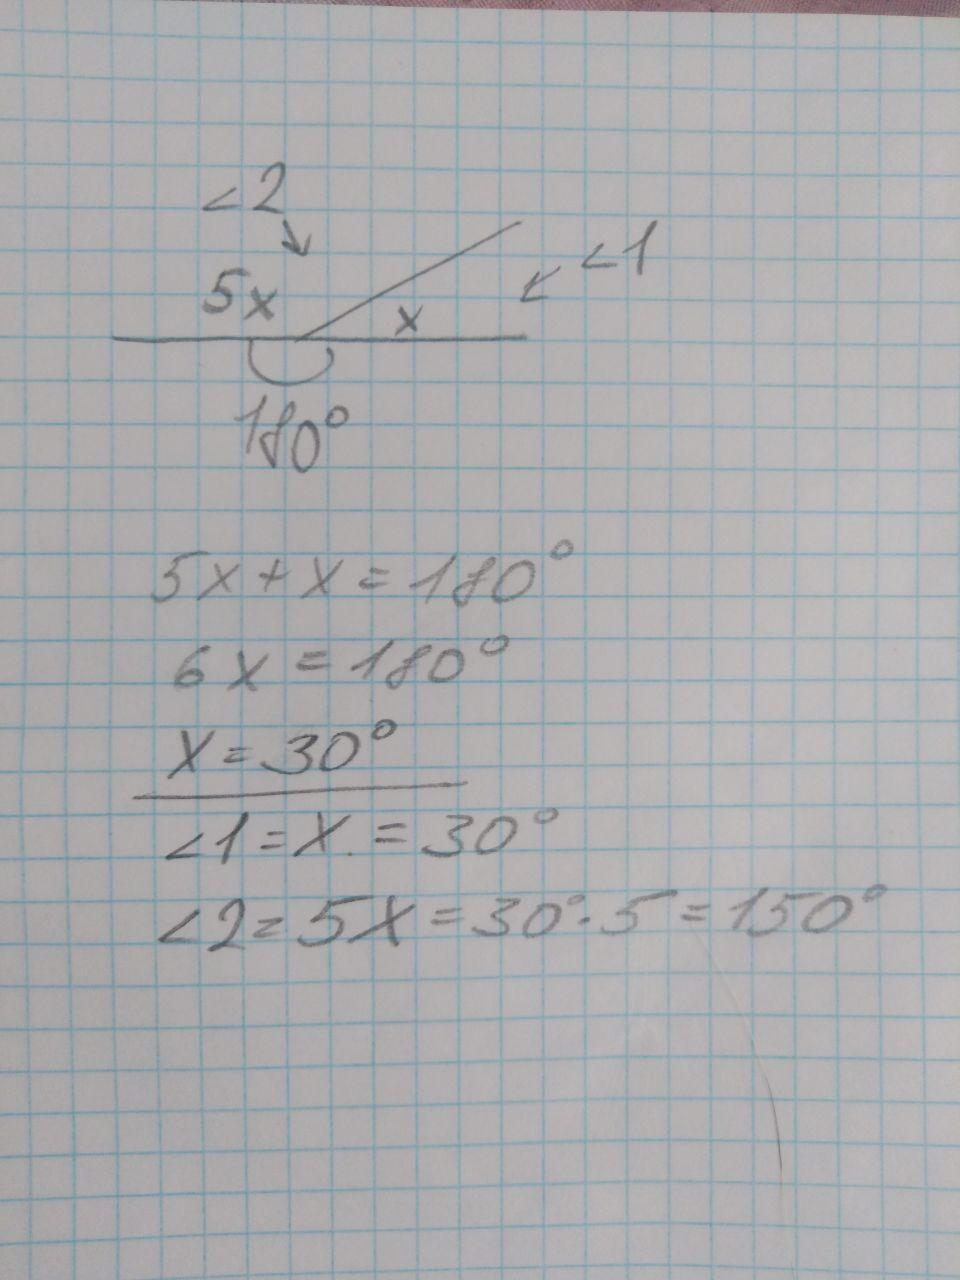 ∠2
5x
∠1
x
180°
5x+x=180°
6x=180°
x=30°
∠1=x.=30°
∠2=5x=30°·5=150°